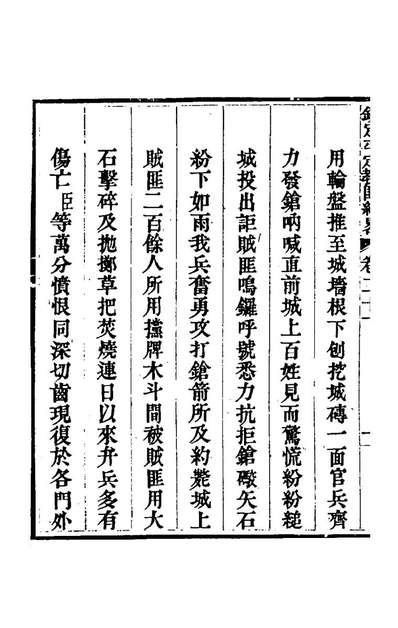 用輪盤推至城墻根下刨挖城磚一面官兵齊
力發鎗吶喊直前城上百姓見而驚慌紛紛縋
城投出詎賊匪鳴鑼呼號悉力抗拒鎗礮矢石
紛下如雨我兵奮勇攻打鎗箭所及約斃城上
賊匪二百餘人所用攩牌木斗間被賊匪用大
石擊碎及拋擲草把焚燒連日以來弁兵多有
傷亡臣等萬分憤恨同深切齒現復於各門外